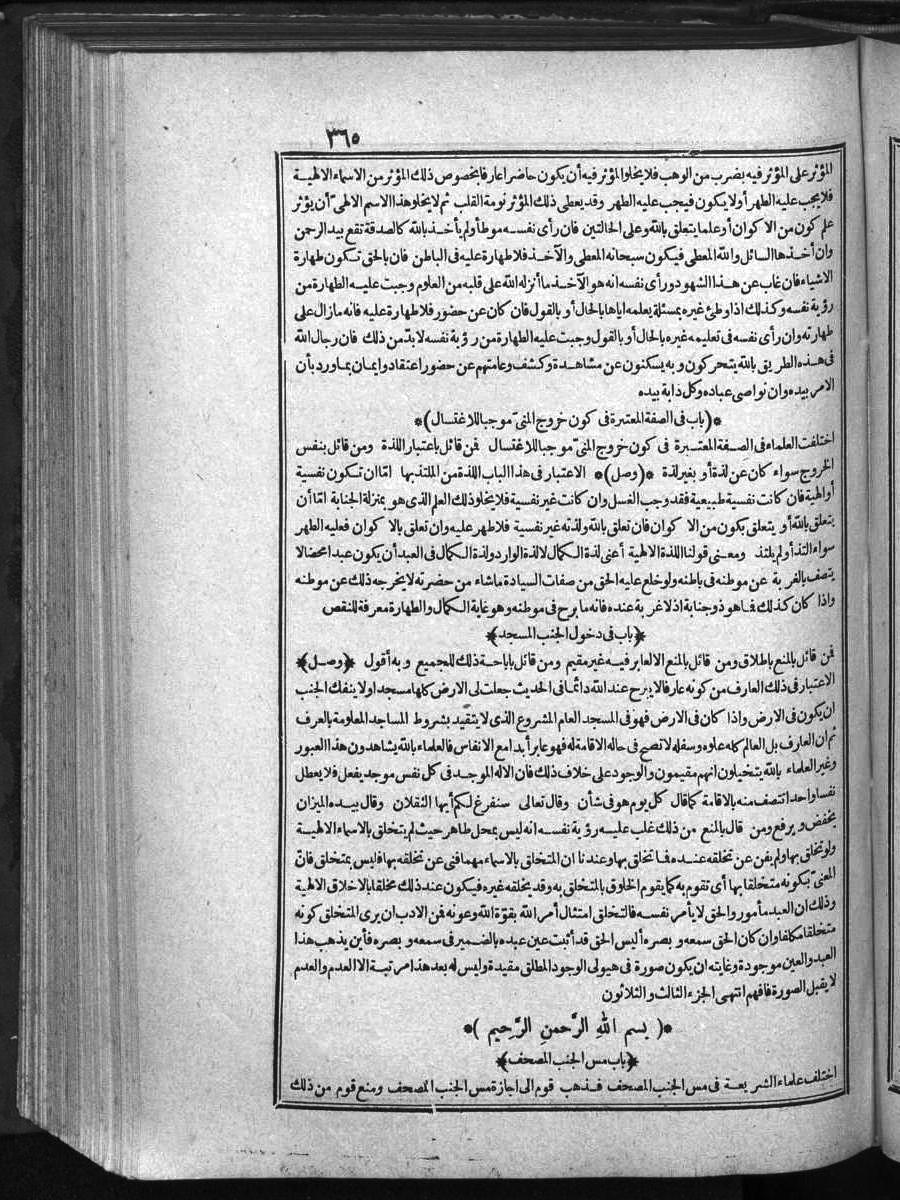 ٣٦٥
المؤثر على المؤثر فيه بضرب من الوهب فلا يخلو المؤثر فيه أن يكون حاضرا عارفا بخصوص ذلك المؤثر من الاسماء الالهية
فلا يجب عليه الطهر أو لا يكون فيجب عليه الطهر وقد يعطى ذلك المؤثر نومة القلب ثم لا يخلو هذا الاسم الالهى أن يؤثر
علم كون من الاكوان أو علما يتعلق بالله وعلى الحالتين فان رأى نفسه موطأ ولم يأخذ بالله كالصدقة تقع بيد الرحمن
وان أخذها السائل والله المعطى فيكون سبحانه المعطى والآخذ فلا طهارة عليه فى الباطن فان بالحق تكون طهارة
الاشياء فان غاب عن هذا الشهود ورأى نفسه انه هو الآخذ ما أنزله الله على قلبه من العلوم وجبت عليه الطهارة من
رؤية نفسه وكذلك اذا وطئ غيره بمسئلة يعلمه اياها بالحال أو بالقول فان كان عن حضور فلا طهارة عليه فانه مازال على
طهارته وان رأى نفسه فى تعليمه غيره بالحال أو بالقول وجبت عليه الطهارة من رؤية نفسه لابد من ذلك فان رجال الله
فى هذه الطريق بالله يتحركون وبه يسكنون عن مشاهدة وكشف وعامتهم عن حضور اعتقاد وايمان بما ورد بأن
الامر بيده وان نواصى عباده وكل دابة بيده
*(باب فى الصفة المعتبرة فى كون خروج المنىّ موجبا للاغتسال)*
اختلفت العلماء فى الصفة المعتبرة فى كون خروج المنىّ موجبا للاغتسال فمن قائل باعتبار اللذة ومن قائل بنفس
الخروج سواء كان عن لذة أو بغير لذة *(وصل)* الاعتبار فى هذا الباب اللذة من الملتذ بها امّا ان تكون نفسية
أو الهية فان كانت نفسية طبيعية فقد وجب الغسل وان كانت غير نفسية فلا يخلو ذلك العلم الذى هو بمنزلة الجنابة امّا أن
يتعلق بالله أو يتعلق بكون من الاكوان فان تعلق بالله ولذته غير نفسية فلا طهر عليه وان تعلق بالاكوان فعليه الطهر
سواء التذ أو لم يلتذ ومعنى قولنا اللذة الالهية أعنى لذة الكمال لا لذة الوارد ولذة الكمال فى العبد أن يكون عبدا محضا لا
يتصف بالغربة عن موطنه فى باطنه ولو خلع عليه الحق من صفات السيادة ما شاء من حضرته لا يخرجه ذلك عن موطنه
واذا كان كذلك فما هو ذو جنابة اذ لا غربة عنده فانه ما برح فى موطنه وهو غاية الكمال والطهارة معرفة للنقص
*(باب فى دخول الجنب المسجد)*
فمن قائل بالمنع باطلاق ومن قائل بالمنع الا لعابر فيه غير مقيم ومن قائل باباحة ذلك للجميع وبه أقول *(وصل)*
الاعتبار فى ذلك العارف من كونه عارفا لا يبرح عند الله دائما فى الحديث جعلت لى الارض كلها مسجدا ولا ينفك الجنب
ان يكون فى الارض واذا كان فى الارض فهو فى المسجد العام المشروع الذى لا يتقيد بشروط المساجد المعلومة بالعرف
ثم ان العارف بل العالم كله علوه وسفله لا تصح فى حاله الاقامة له فهو عابر أبدا مع الانفاس فالعلماء بالله يشاهدون هذا العبور
وغير العلماء بالله يتخيلون انهم مقيمون والوجود على خلاف ذلك فان الاله الموجد فى كل نفس موجد يفعل فلا يعطل
نفسا واحدا تتصف منه بالاقامة كما قال كل يوم هو فى شأن وقال تعالى سنفرغ لكم أيها الثقلان وقال بيده الميزان
يخفض ويرفع ومن قال بالمنع من ذلك غلب عليه رؤية نفسه انه ليس بمحل طاهر حيث لم يتخلق بالاسماء الالهية
ولو تخلق بها ولم يفن عن تخلقه عنده فما تخلق بها وعندنا ان المتخلق بالاسماء مهما فنى عن تخلقه بها فليس بمتخلق فانّ
المعنىّ بكونه متخلقا بها أى تقوم به كما يقوم الخلوق بالمتخلق به وقد يخلقه غيره فيكون عند ذلك مخلقا بالاخلاق الالهية
وذلك ان العبد مأمور والحق لا يأمر نفسه فالتخلق امتثال أمر الله بقوّة الله وعونه فمن الادب ان يرى المتخلق كونه
متخلقا مكلفا وان كان الحق سمعه وبصره أليس الحق قد أثبت عين عبده بالضمير فى سمعه وبصره فأين يذهب هذا
العبد والعين موجودة وغايته ان يكون صورة فى هيولى الوجود المطلق مقيدة وليس له بعد هذا مرتبة الا العدم والعدم
لا يقبل الصورة فافهم انتهى الجزء الثالث والثلاثون
*( بسم اللهِ الرَّحمنِ الرَّحِيمِ )*
*(باب مس الجنب المصحف)*
اختلف علماء الشريعة فى مس الجنب المصحف فذهب قوم الى اجازة مس الجنب المصحف ومنع قوم من ذلك